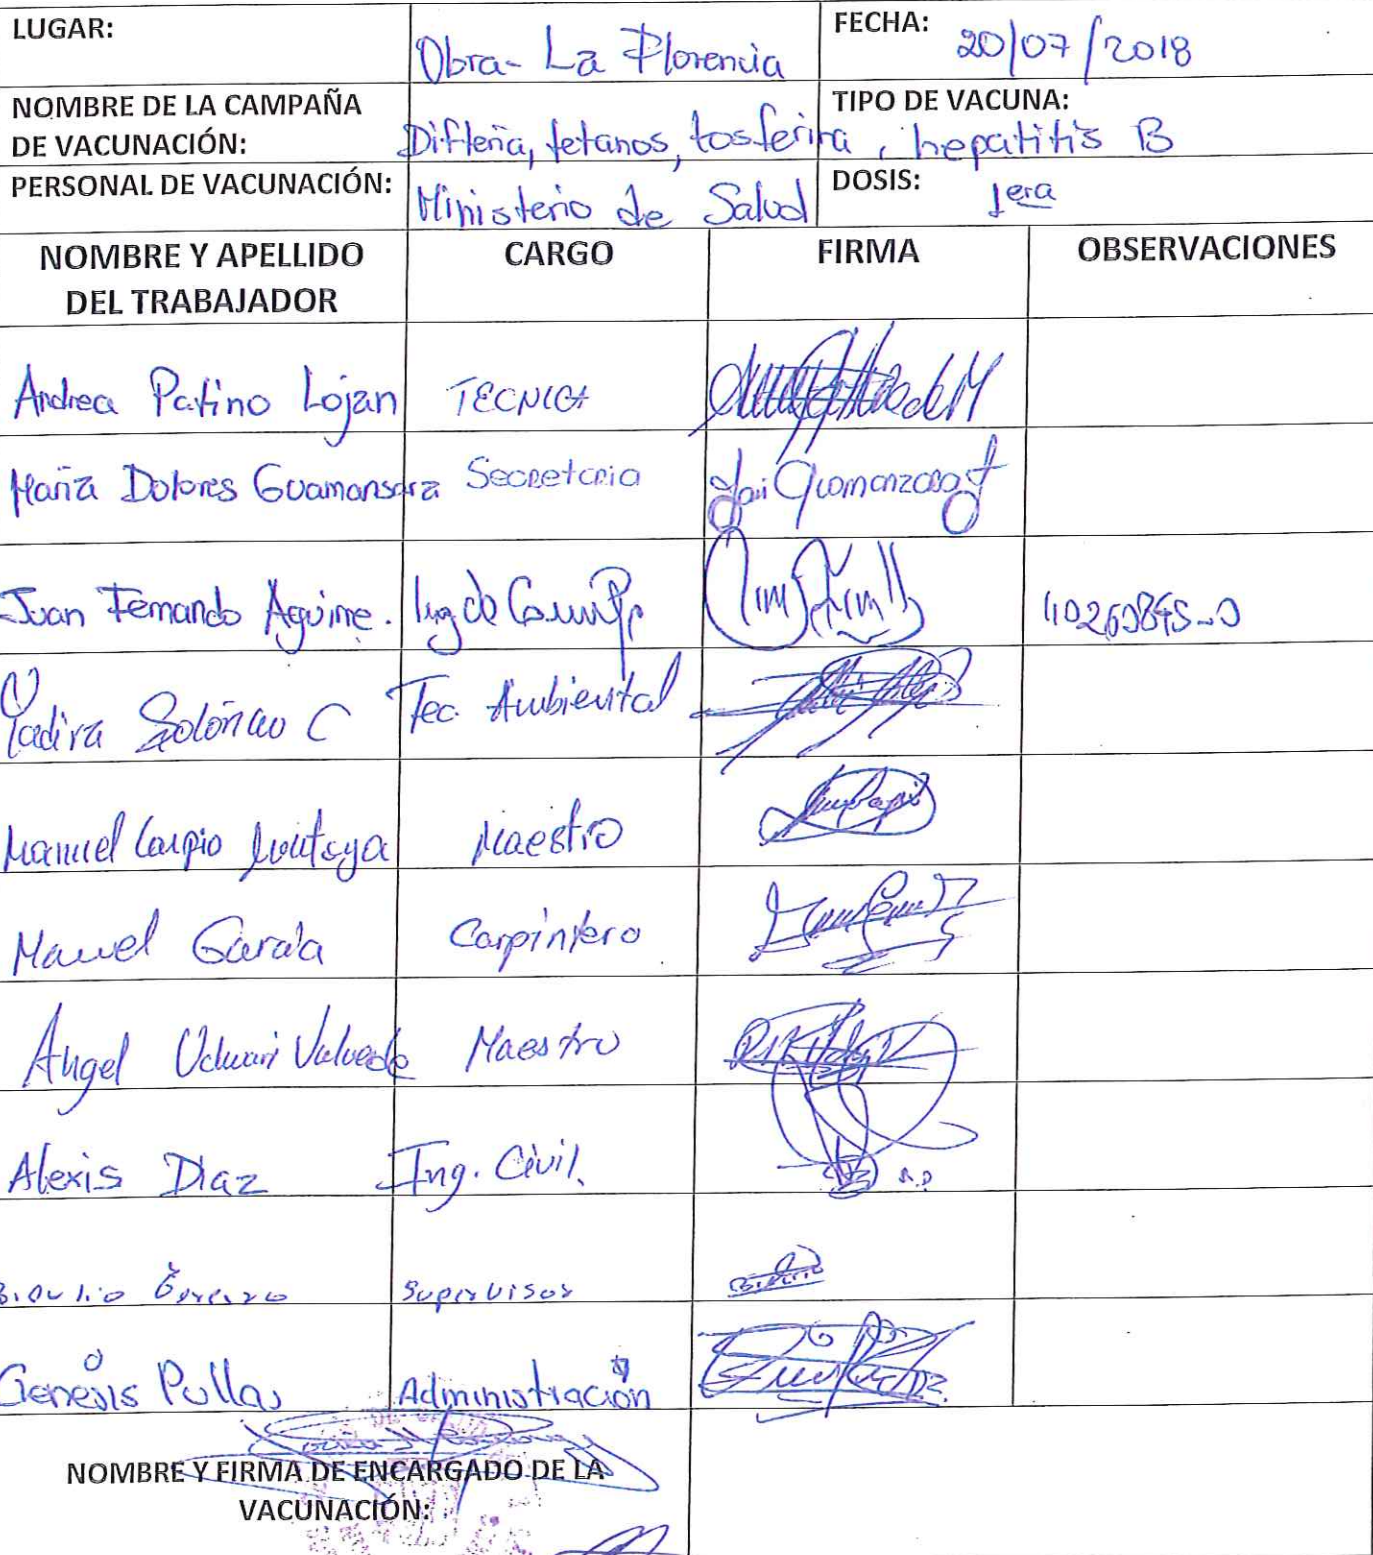 LUGAR: Obra- La Florencia FECHA: 20/07/2018
NOMBRE DE LA CAMPAÑA TIPO DE VACUNA:
DE VACUNACIÓN: Difteria, tetanos, tosferina, hepatitis B
PERSONAL DE VACUNACIÓN: Ministerio de Salud DOSIS: 1era
NOMBRE Y APELLIDO CARGO FIRMA OBSERVACIONES
DEL TRABAJADOR
Andrea Patino Lojan TECNICA
Maria Dolores Guamansara Secretaria
Juan Fernando Aguirre. Ing de
Yadira C Tec. Ambiental
Manuel Carpio Maestro
Manuel Garcia Carpintero
Angel Maestro
Alexis Diaz Ing. Civil.
Supervisor
Genesis Pullas Administración
NOMBRE Y FIRMA DE ENCARGADO DE LA
VACUNACIÓN: